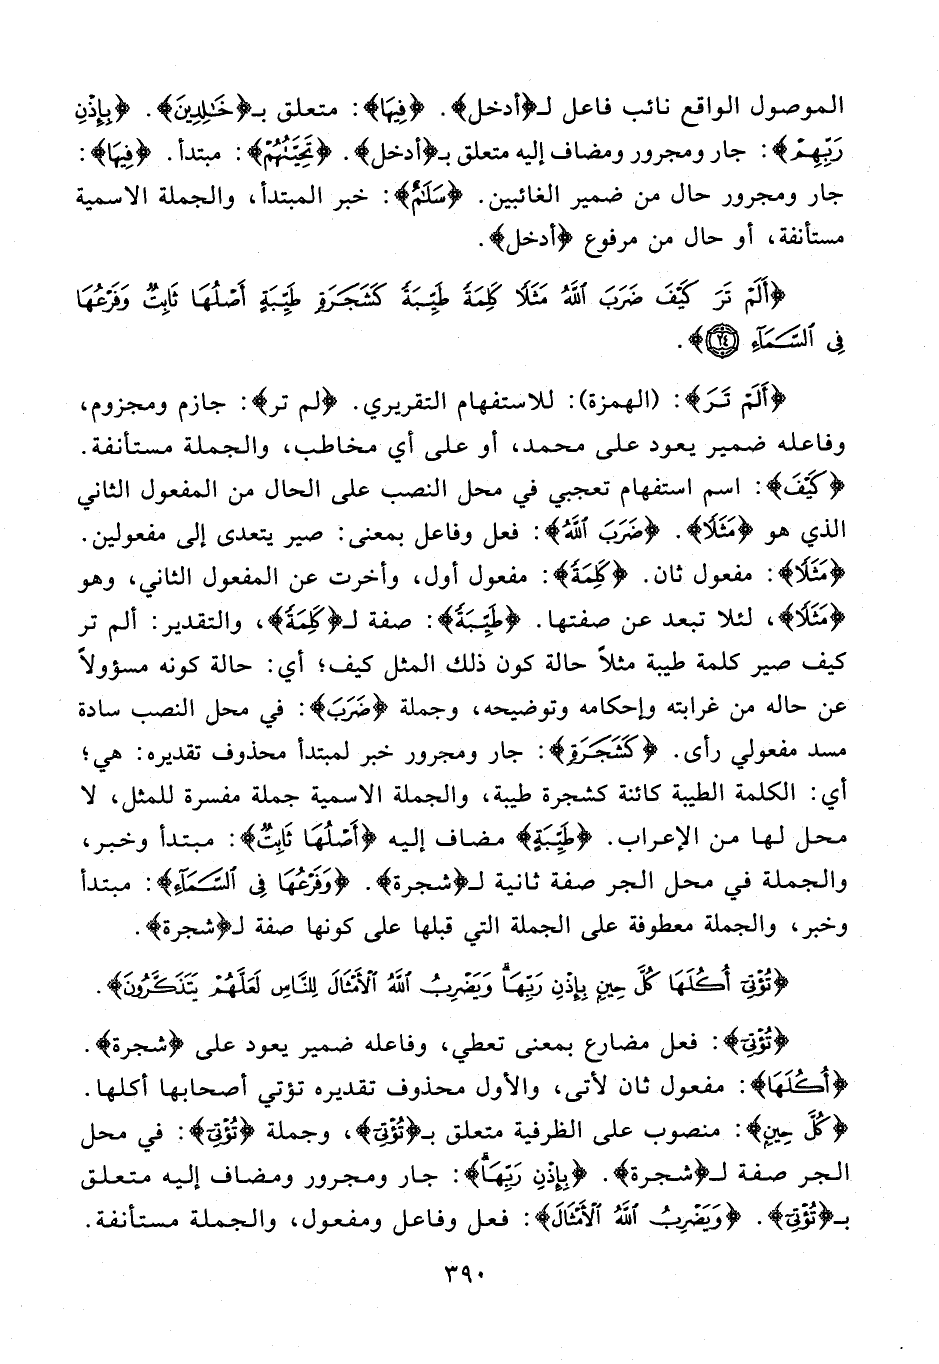 الموصول الواقع نائب فاعل لـ﴿أدخل﴾. ﴿فِيهَا﴾: متعلق بـ﴿خَٰلِدِينَ﴾. ﴿بِإِذْنِ
رَبِّهِمْ﴾: جار ومجرور ومضاف إليه متعلق بـ﴿أدخل﴾. ﴿تَحِيَّتُهُمْ﴾: مبتدأ. ﴿فِيهَا﴾:
جار ومجرور حال من ضمير الغائبين. ﴿سَلَٰمٌ﴾: خبر المبتدأ، والجملة الاسمية
مستأنفة، أو حال من مرفوع ﴿أدخل﴾.
﴿أَلَمْ تَرَ كَيْفَ ضَرَبَ ٱللَّهُ مَثَلًا كَلِمَةً طَيِّبَةً كَشَجَرَةٍ طَيِّبَةٍ أَصْلُهَا ثَابِتٌ وَفَرْعُهَا
فِى ٱلسَّمَآءِ ٢٤﴾.
﴿أَلَمْ تَرَ﴾: (الهمزة): للاستفهام التقريري. ﴿لم تر﴾: جازم ومجزوم،
وفاعله ضمير يعود على محمد، أو على أي مخاطب، والجملة مستأنفة.
﴿كَيْفَ﴾: اسم استفهام تعجبي في محل النصب على الحال من المفعول الثاني
الذي هو ﴿مَثَلًا﴾. ﴿ضَرَبَ ٱللَّهُ﴾: فعل وفاعل بمعنى: صير يتعدى إلى مفعولين.
﴿مَثَلًا﴾: مفعول ثان. ﴿كَلِمَةً﴾: مفعول أول، وأخرت عن المفعول الثاني، وهو
﴿مَثَلًا﴾، لئلا تبعد عن صفتها. ﴿طَيِّبَةً﴾: صفة لـ﴿كَلِمَةً﴾، والتقدير: ألم تر
كيف صير كلمة طيبة مثلاً حالة كون ذلك المثل كيف؛ أي: حالة كونه مسؤولاً
عن حاله من غرابته وإحكامه وتوضيحه، وجملة ﴿ضَرَبَ﴾: في محل النصب سادة
مسد مفعولي رأى. ﴿كَشَجَرَةٍ﴾: جار ومجرور خبر لمبتدأ محذوف تقديره: هي؛
أي: الكلمة الطيبة كائنة كشجرة طيبة، والجملة الاسمية جملة مفسرة للمثل، لا
محل لها من الإعراب. ﴿طَيِّبَةٍ﴾ مضاف إليه ﴿أَصْلُهَا ثَابِتٌ﴾: مبتدأ وخبر،
والجملة في محل الجر صفة ثانية لـ﴿شجرة﴾. ﴿وَفَرْعُهَا فِى ٱلسَّمَآءِ﴾: مبتدأ
وخبر، والجملة معطوفة على الجملة التي قبلها على كونها صفة لـ﴿شجرة﴾.
﴿تُؤْتِىٓ أُكُلَهَا كُلَّ حِينٍۭ بِإِذْنِ رَبِّهَاۗ وَيَضْرِبُ ٱللَّهُ ٱلْأَمْثَالَ لِلنَّاسِ لَعَلَّهُمْ يَتَذَكَّرُونَ﴾.
﴿تُؤْتِىٓ﴾: فعل مضارع بمعنى تعطي، وفاعله ضمير يعود على ﴿شجرة﴾.
﴿أُكُلَهَا﴾: مفعول ثان لأتى، والأول محذوف تقديره تؤتي أصحابها أكلها.
﴿كُلَّ حِينٍۭ﴾: منصوب على الظرفية متعلق بـ﴿تُؤْتِىٓ﴾، وجملة ﴿تُؤْتِىٓ﴾: في محل
الجر صفة لـ﴿شجرة﴾. ﴿بِإِذْنِ رَبِّهَاۗ﴾: جار ومجرور ومضاف إليه متعلق
بـ﴿تُؤْتِىٓ﴾. ﴿وَيَضْرِبُ ٱللَّهُ ٱلْأَمْثَالَ﴾: فعل وفاعل ومفعول، والجملة مستأنفة.
٣٩٠